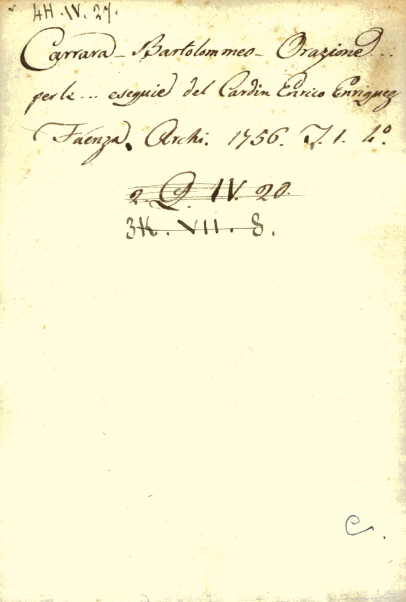 4H.IV.27.
Carrara - Bartolommeo - Orazione...
per le ... esequie del Cardin Enrico Enriquez
Faenza. Archi. 1756. T. 1. 4º.
2. Q. IV. 20.
3K. VII. 8.
C.